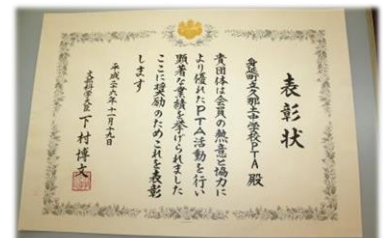 表彰状
身延町立久那土中学校PTA 殿
貴団体は会員の熱意と協力に
より優れたPTA活動を行い
顕著な業績を挙げられました
ここに奨励のためこれを表彰
します
平成二十六年十一月十九日
文部科学大臣 下村博文